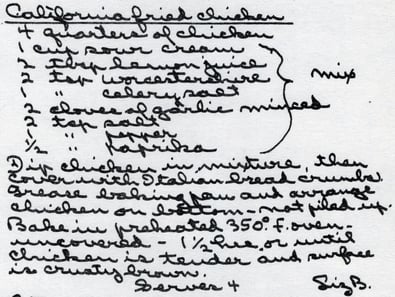 California fried chicken
4 quarters of chicken
1 cup sour cream
2 tbsp lemon juice
2 tsp worcestershire
1 " celery salt
2 cloves of garlic minced
2 tsp salt
1 " pepper
1/2 " paprika
mix
Dip chicken in mixture, then
cover with Italian bread crumbs.
Grease baking pan and arrange
chicken on bottom - not piled up.
Bake in preheated 350° f. oven -
uncovered - 1 1/2 hr, or until
chicken is tender and surface
is crusty brown.
Serves 4 Siz B.